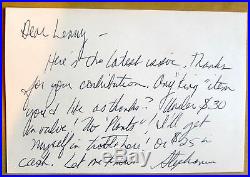 Dear Lenny –
Here's the latest issue. Thanks
for your contribution. Any "King" item
you'd like as thanks? Under $30
in value! No "Plants"! I'll get
myself in trouble here! Or $25 in
cash. Let me know. Stephanie